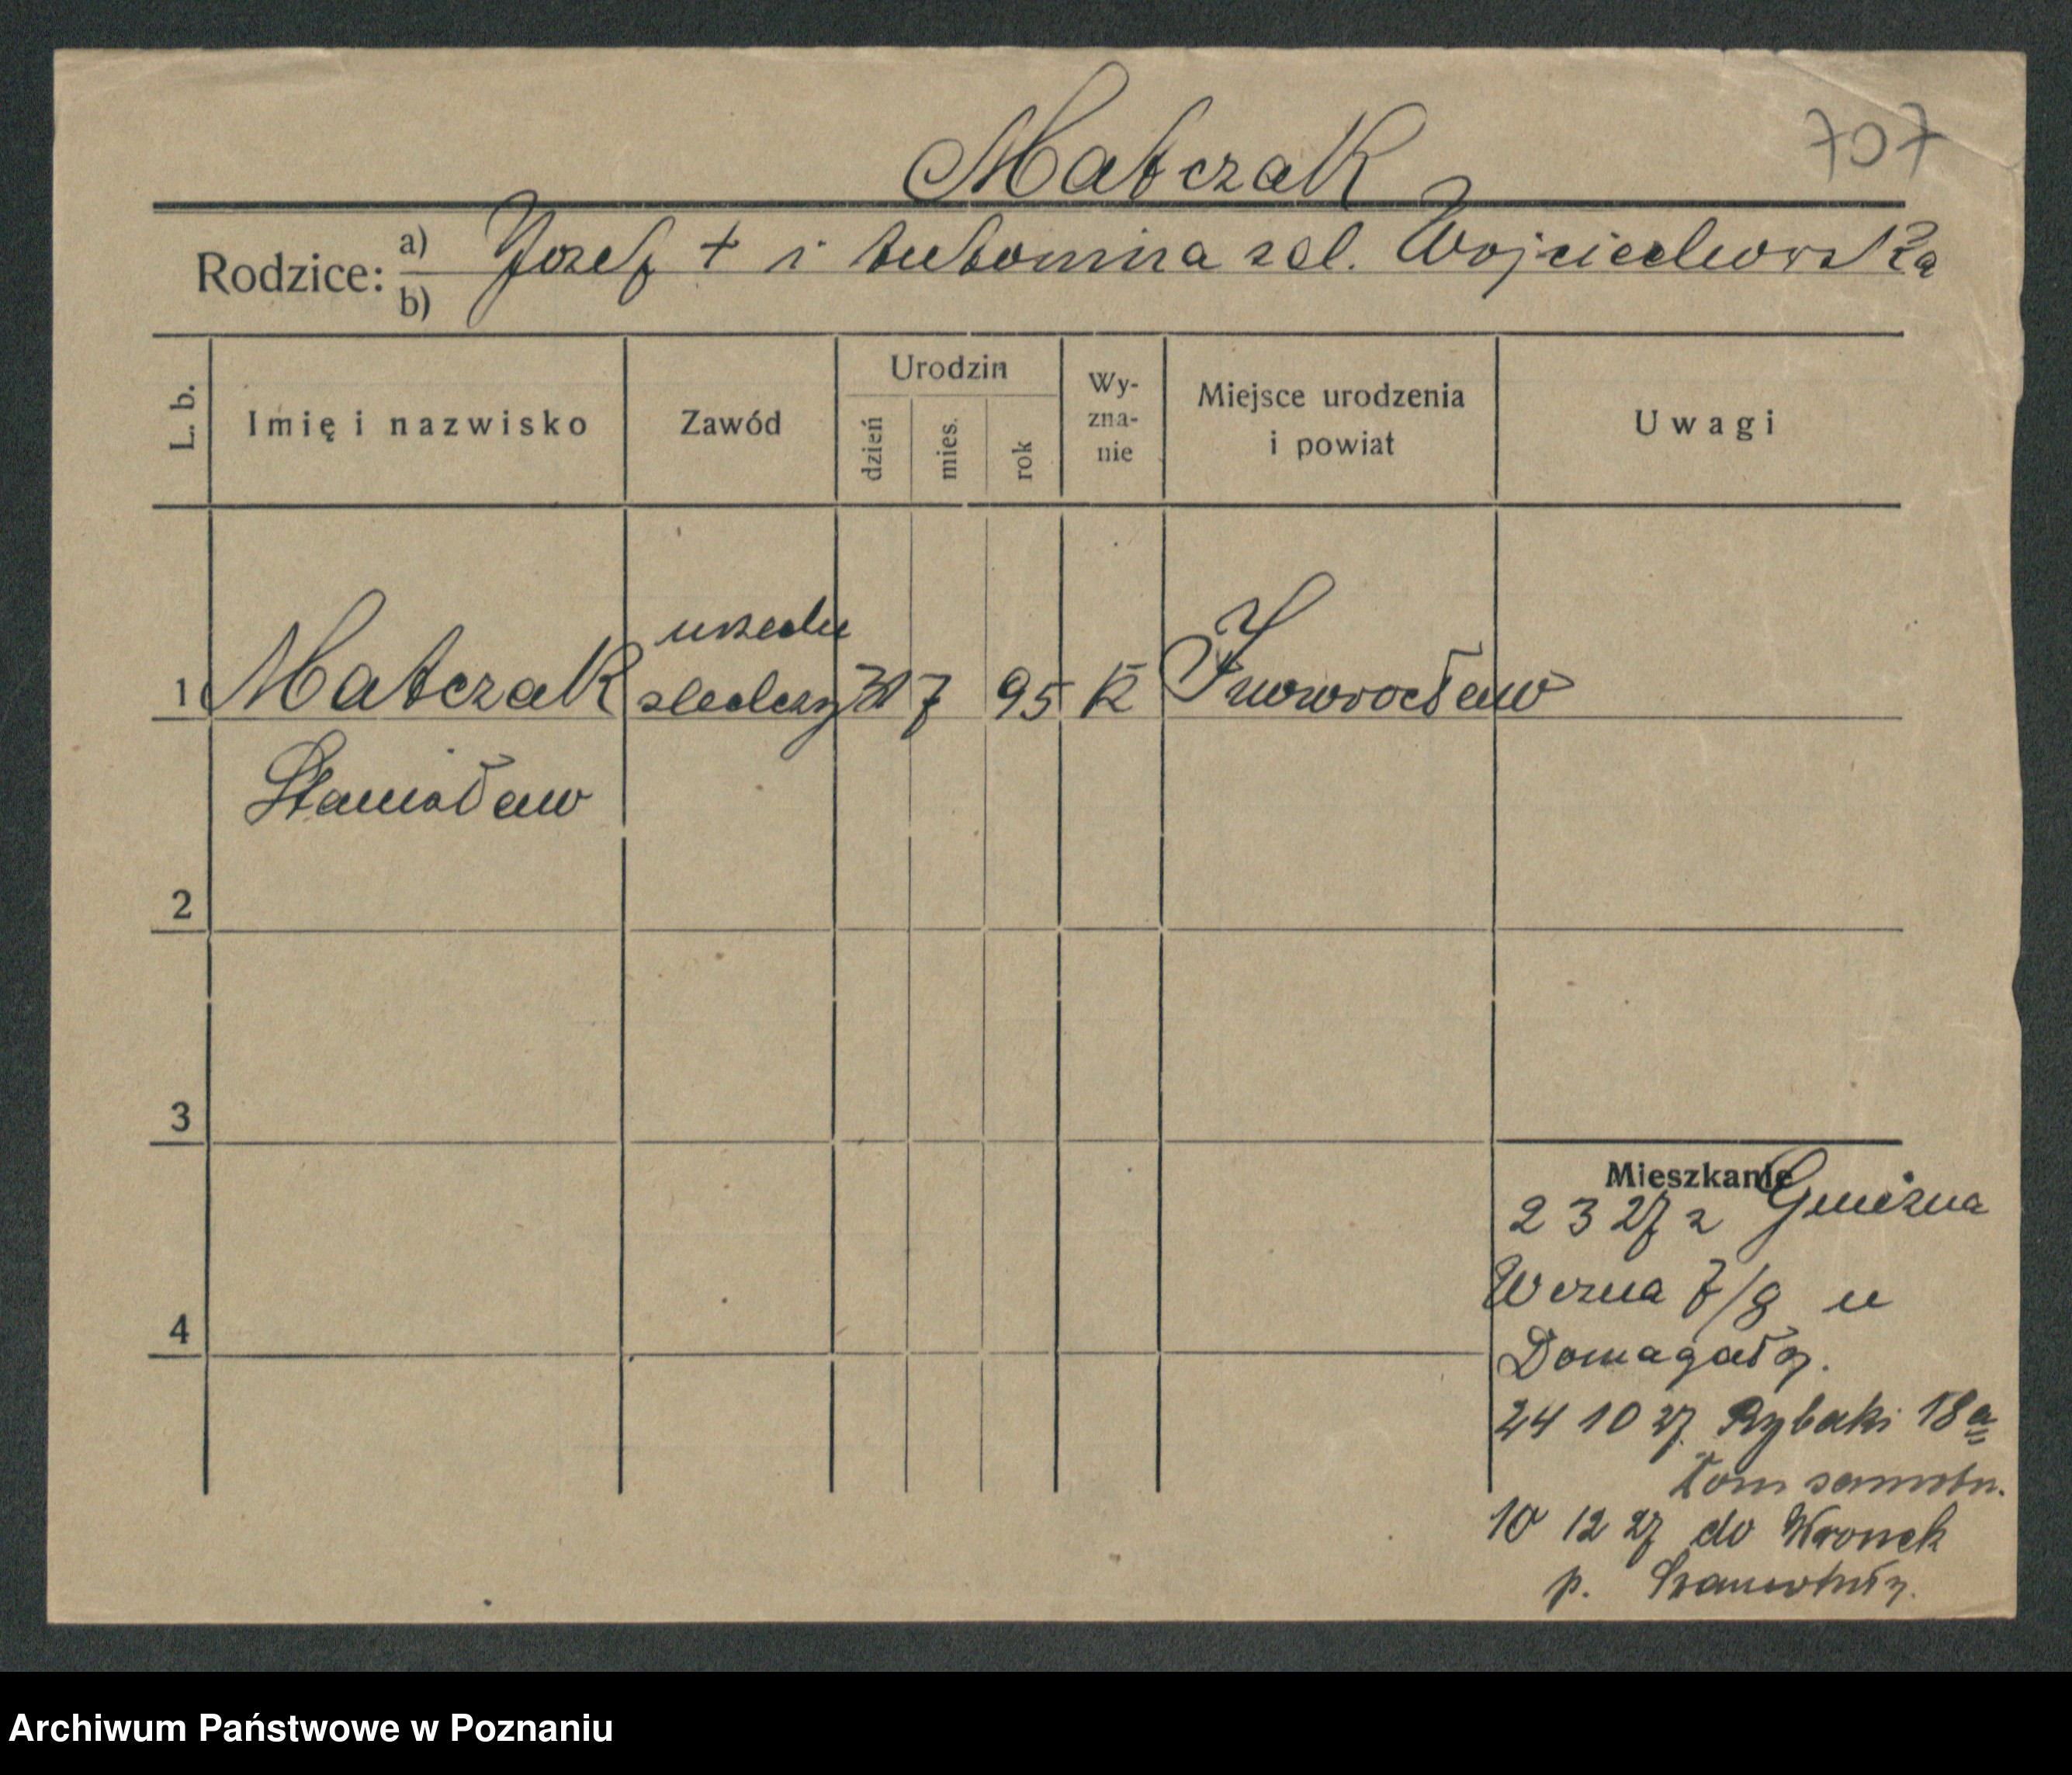 Matczak
707
Rodzice: a) Jozef + i Antonina zd. Wojciechowska
b)
L. b. Imię i nazwisko Zawód Urodzin dzień mies. rok Wy-zna-nie Miejsce urodzenia i powiat Uwagi
urzedn
1 Matczak sledczy 31 7 95 K Inowrocław
Stanisław
2
3
Mieszkanie
2 3 27 z Gniezna
Wozna 7/8 u
4
Domagały.
24 10 27 Rybaki 18a
Tom
10 12 27 do Wronek
p. Szamotuły.
Archiwum Państwowe w Poznaniu